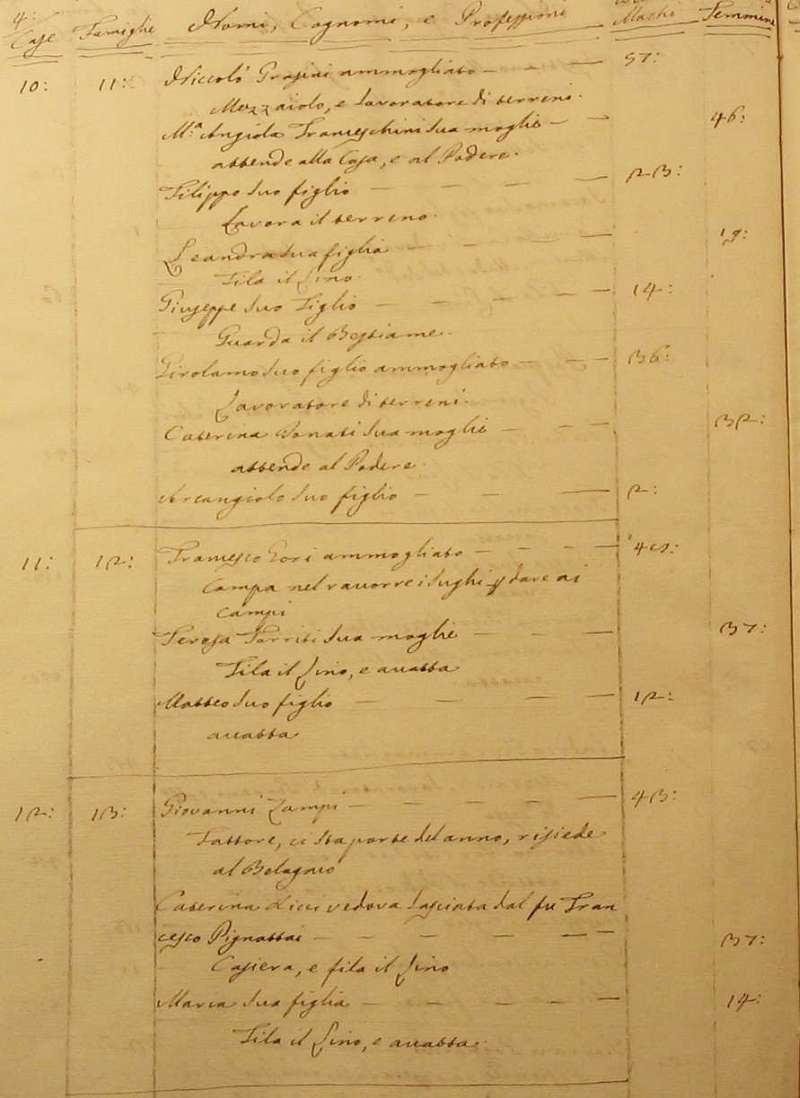 4:
Case Famiglie Nomi, Cognomi, e Professioni Maschi Femmine
10: 11: Niccolò Grasini ammogliato 57:
Mezzaiolo, e Lavoratore di terreni.
M.a Angiola Franceschini sua moglie 46:
attende alla Casa, e al Podere.
Filippo suo figlio 23:
Lavora il terreno.
Leandra sua figlia 19:
Fila il Lino.
Giuseppe suo Figlio 14:
Guarda il Bestiame.
Girolamo suo figlio ammogliato 36:
Lavoratore di terreni.
Caterina Donati sua moglie 32:
attende al Podere.
Arcangiolo suo figlio 2:
11: 12: Francesco Gori ammogliato
Campa nel i sughi dare ai
campi
Teresa Porriti sua moglie 37:
Fila il Lino, e accatta
Matteo suo figlio 12:
accatta
12: 13: Giovanni Zampi 43:
Fattore, ci sta parte del anno, risiede
al
Caterina vedova lasciata dal fu Fran
cesco Pignattai 37:
Casiera, e fila il Lino
Maria sua figlia 14:
Fila il Lino, e accatta.